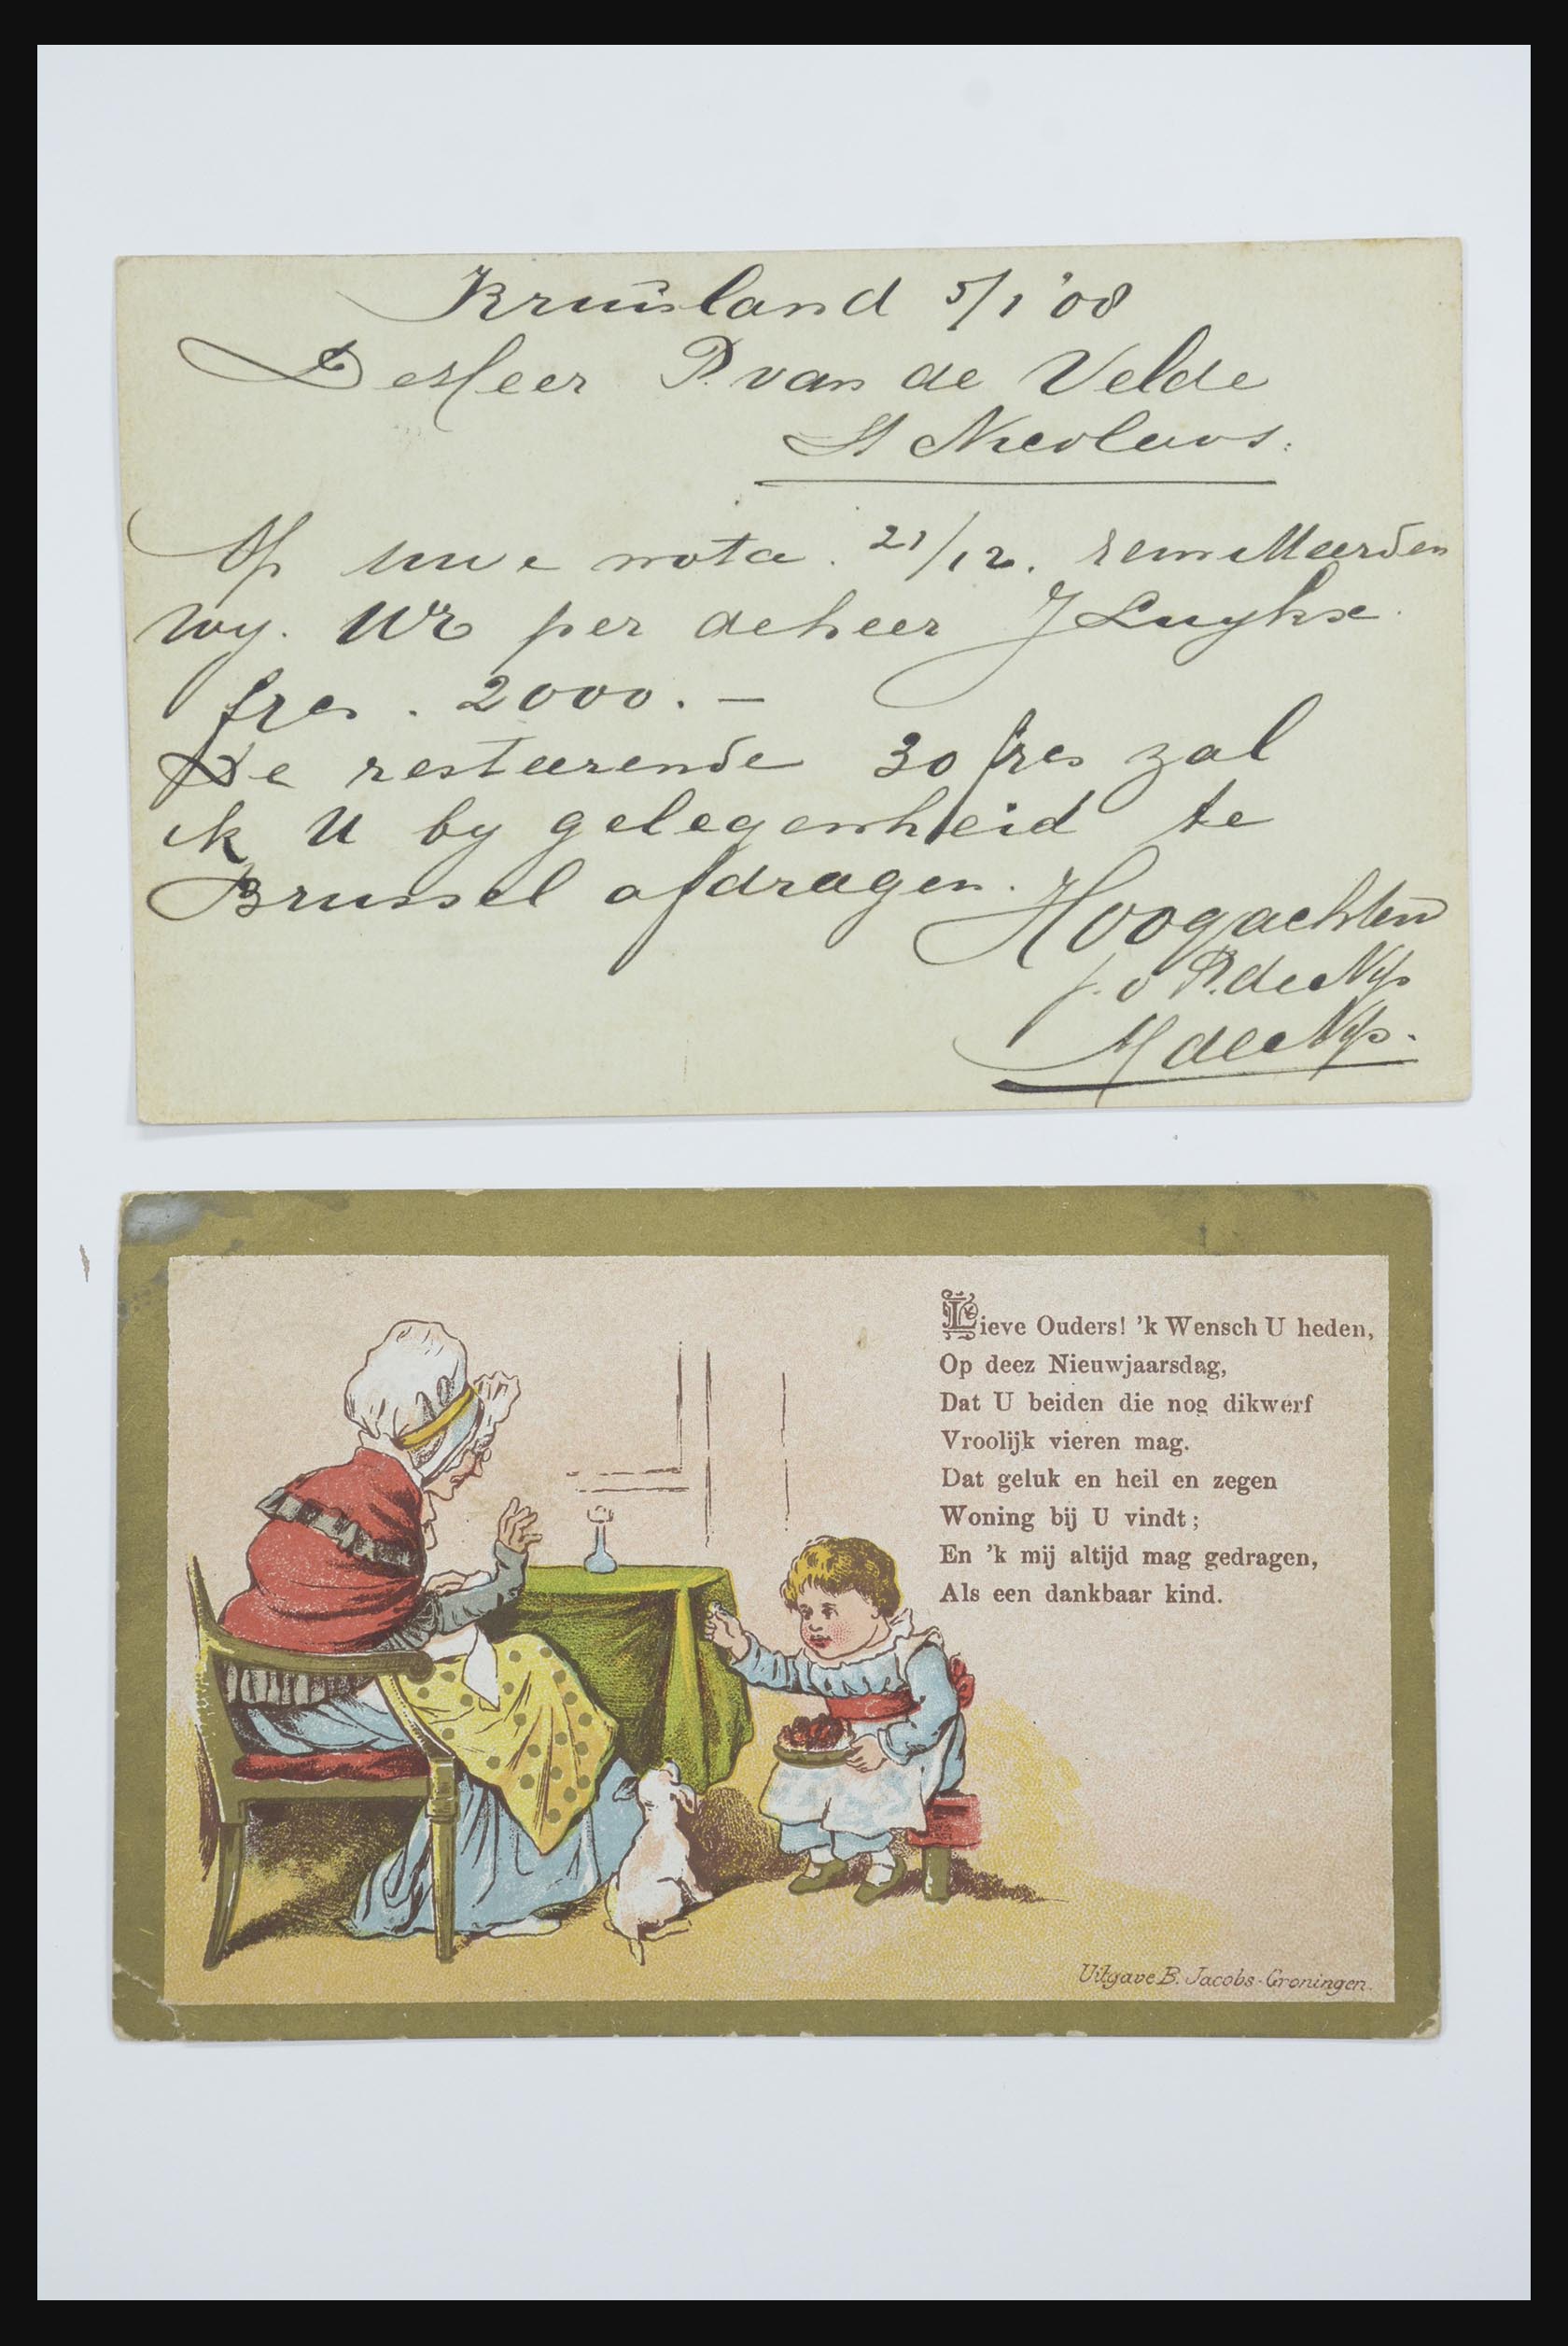 Kruisland 5/1 '08
De Heer P. van de Velde
St Nicolaas.
Op uwe nota. 21/12. remitteerden
wy. UEd per de heer J Luykx.
frcs. 2000.-
De resteerende 30 frcs zal
ik U by gelegenheid te
Brussel afdragen.
Hoogachtend
P. de Nijs
M de Nijs.
Lieve Ouders! 'k Wensch U heden,
Op deez Nieuwjaarsdag,
Dat U beiden die nog dikwerf
Vroolijk vieren mag.
Dat geluk en heil en zegen
Woning bij U vindt;
En 'k mij altijd mag gedragen,
Als een dankbaar kind.
Uitgave B. Jacobs-Groningen.